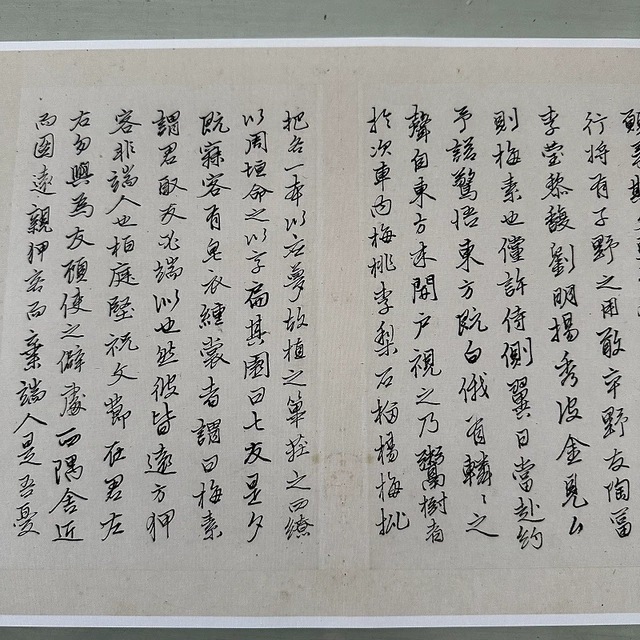 行将有子野之用敢卒野友陶冨
李莹黎馥劉明揚秀皮金見厶
則梅素也僅許侍側翼日當赴約
予諾驚悟東方既白俄有轔〻之
聲自東方来開户視之乃鬻樹者
於次車内梅桃李梨石榴楊梅枇
杷各一本以应夢故植之菓莊之四繚
以周垣命之以字扁其園曰七友是夕
既寐客有皂衣纁裳者謂曰梅素
謂君取友必端似也然彼皆遠方狎
客非端人也柏庭堅祝文節在君左
右勿與為友顧使之僻處西隅舍近
而圖遠親狎客而棄端人是吾憂